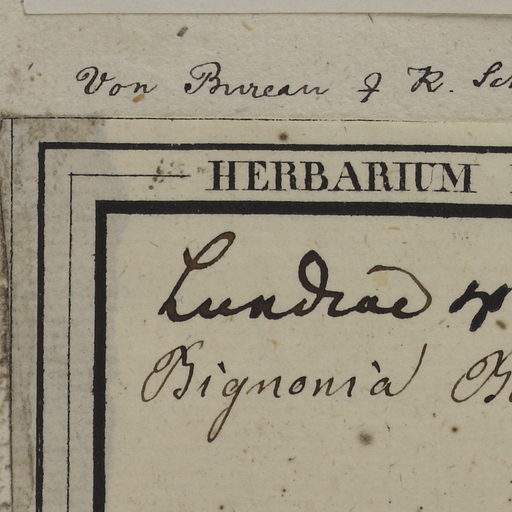 Von Bureau & K. Sch
HERBARIUM
Lundiae sp
Bignonia B